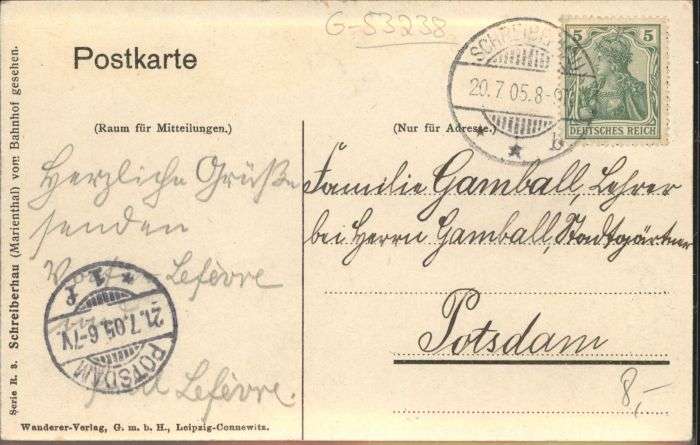 G-53238
Postkarte
5 5
DEUTSCHES REICH
20.7.05.8-9
b
(Raum für Mitteilungen.)
(Nur für Adresse.)
Herzliche Grüße
senden
Lefèvre
Lefèvre.
Familie Gamball, Lehrer
bei Herrn Gamball, Stadtgärtner
Potsdam
8,-
* 1 f
21.7.05.6-7V.
POTSDAM
Serie R. 3. Schreiberhau (Marienthal) vom Bahnhof gesehen.
Wanderer-Verlag, G. m. b. H., Leipzig-Connewitz.